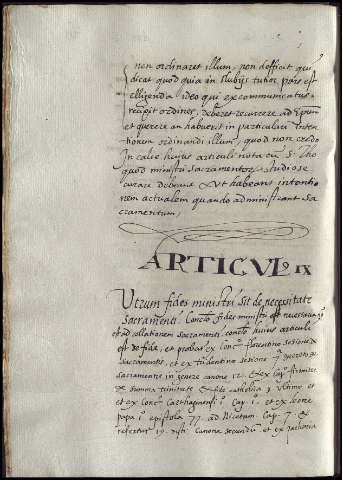 non ordinaret illum, non defficit qui
dicat quod quia in dubijs tutior pars est
elligenda ideo qui excommunicatus
recipit ordines, deberet recurrere ad Epum
et querere an habuerit in particulari inten
tionem ordinandi illum, quod non credo
In calce huius articuli nota cu S. Tho
quod ministri sacramentorum studiose
curare debeant Ut habeant intentio
nem actualem quando administrant sa
cramentum,
ARTICVLº IX
Utrum fides ministri sit de necesitate
sacramenti. Conclo fides ministri est necessaria
ad collationem sacramenti. conclo huius articuli
est de fide, et probat ex Conc. florentino sesione de
sacramentis, et ex tridentino sesione 7
sacramentis in genere canone 12. Et ex Cap. firmiter
de summa trinitate et fide catholica
et ex Conc. Carthaginensi Cap. 1. et ex leone
papa 1 epistola 77. ad Nicetam. Cap. 7. et
refertur Canone secundum et ex